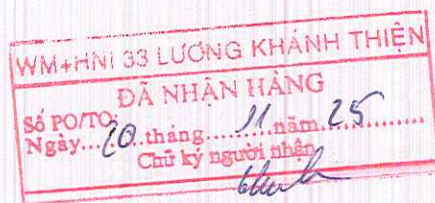 WM+HNI 33 LƯƠNG KHÁNH THIỆN
ĐÃ NHẬN HÀNG
Số PO/TO:
Ngày...20..tháng.....11....năm..25......
Chữ ký người nhận